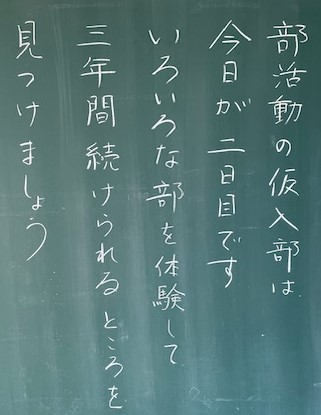 部活動の仮入部は
今日が二日目です
いろいろな部を体験して
三年間続けられるところを
見つけましょう